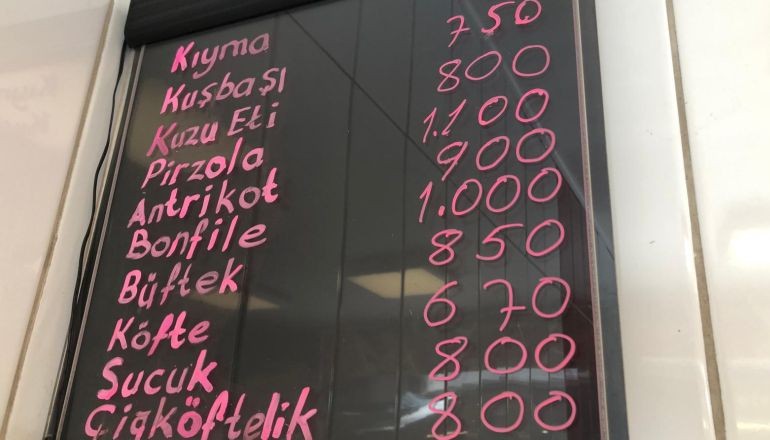 Kıyma 750
Kuşbaşı 800
Kuzu Eti 1.100
Pirzola 900
Antrikot 1.000
Bonfile 850
Büftek 670
Köfte 800
Sucuk 800
Çiğköftelik